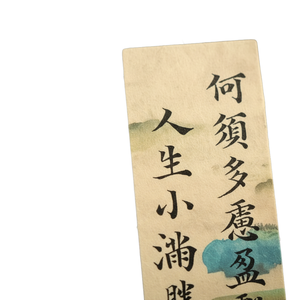 何須多慮盈
人生小滿勝